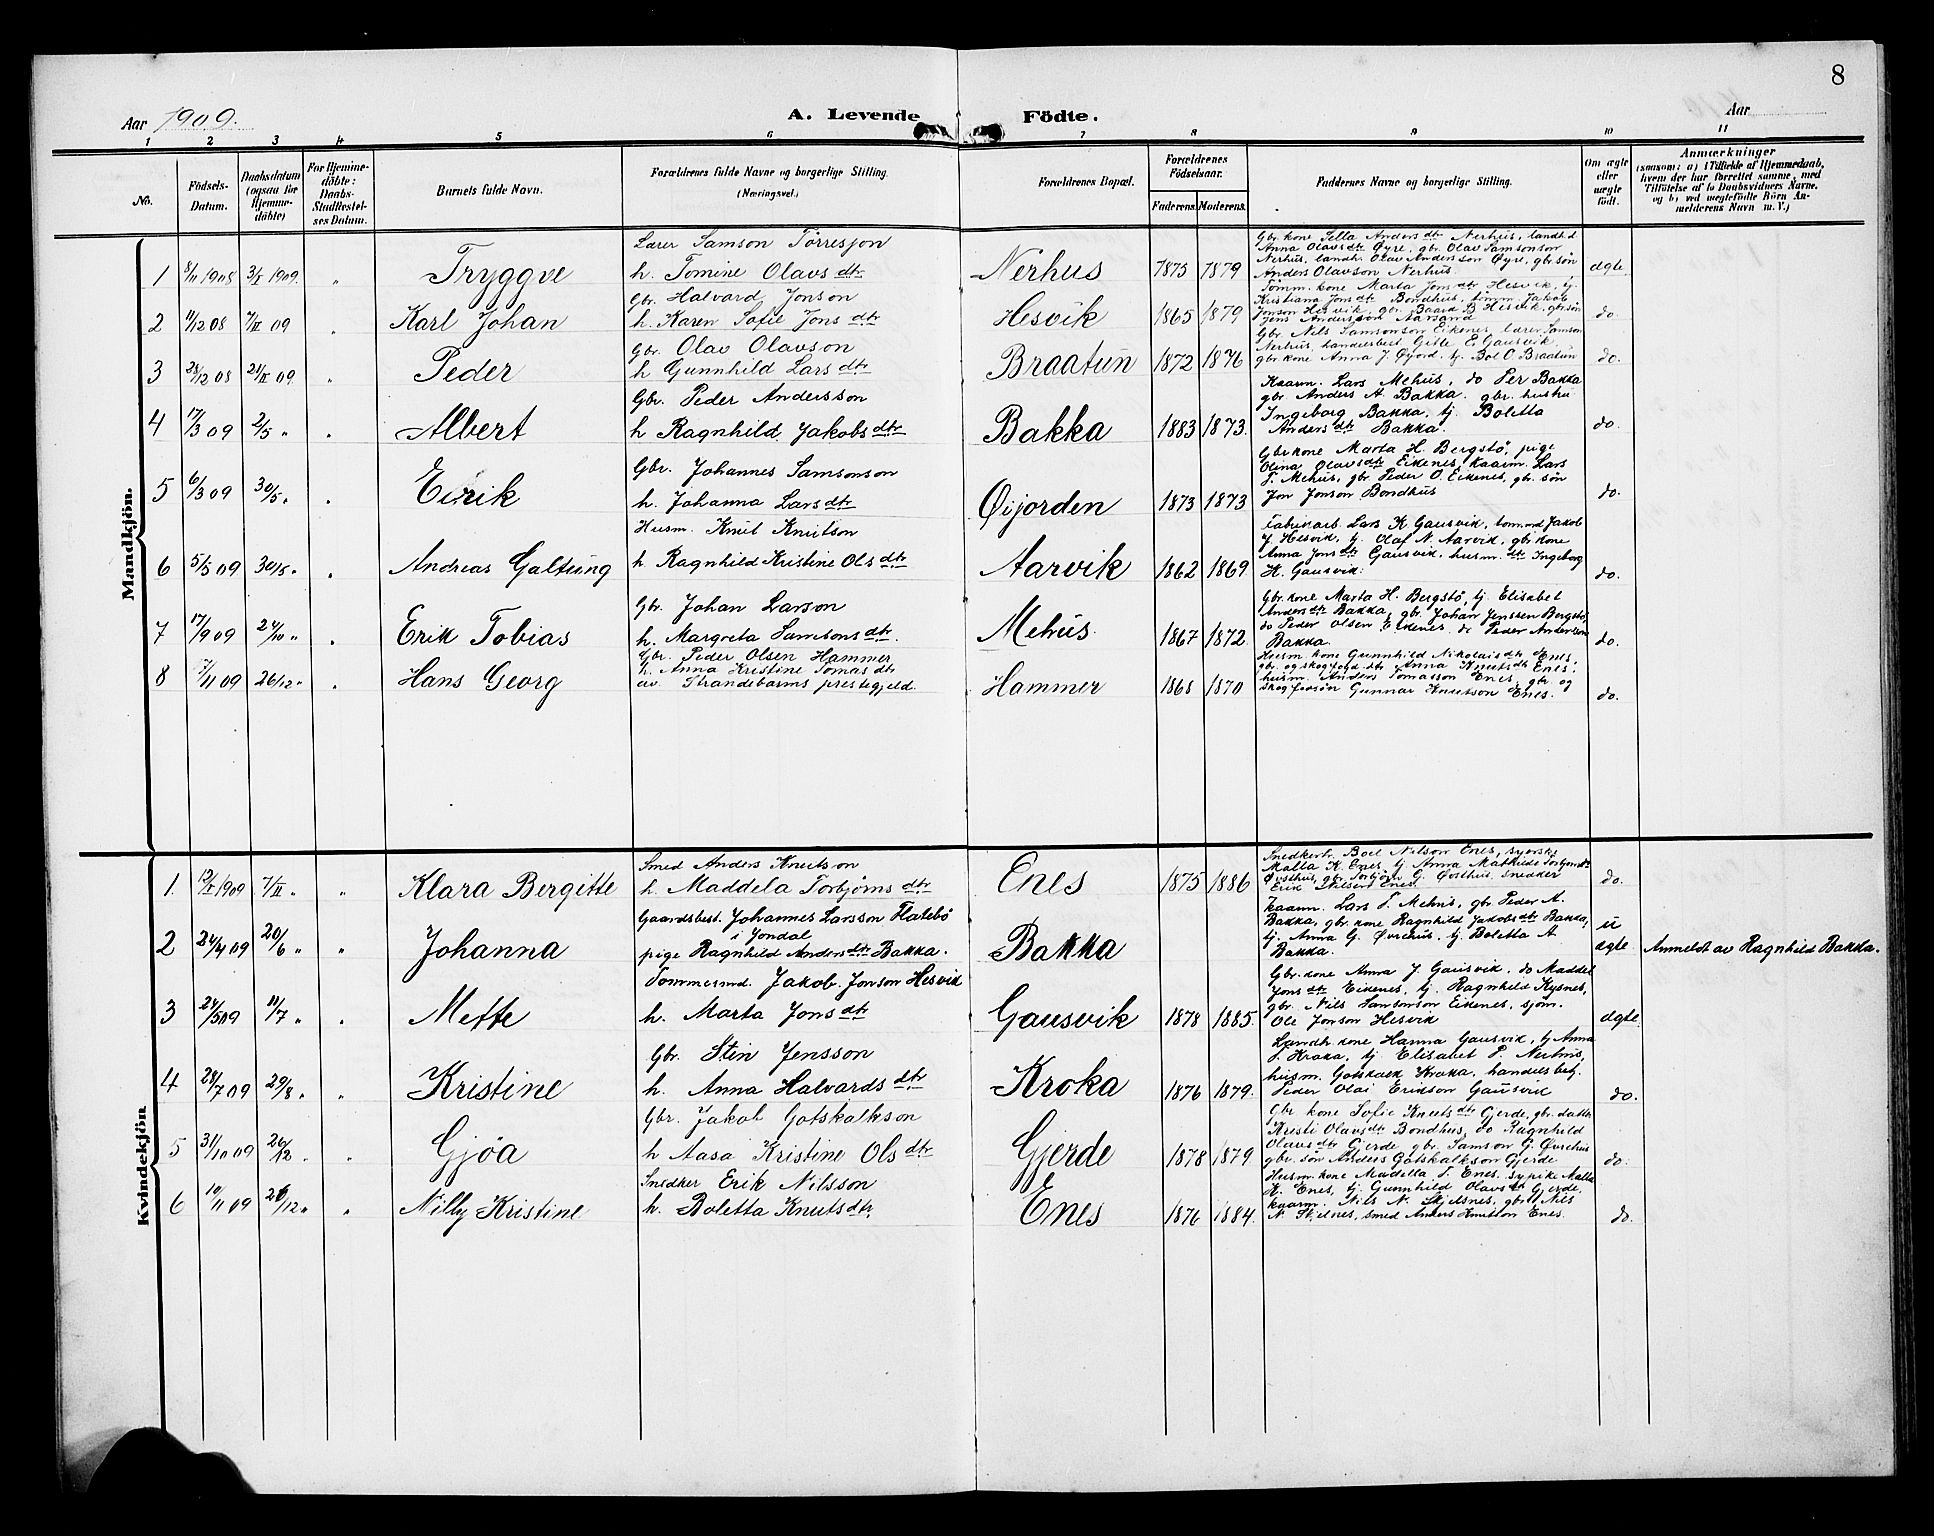 8
Aar 1909. A. Levende Födte. Aar
1 2 3 4 5 6 7 8 9 10 11
No.
Födsels-Datum.
Daabsdatum (ogsaa for Hjemmedöbte)
For Hjemmedöbte: Daabs-Stadfæstelses Datum.
Barnets fulde Navn.
Forældrenes fulde Navne og borgerlige Stilling. (Næringsvei.)
Forældrenes Bopæl.
Forældrenes Födselsaar.
Faderens. Moderens.
Faddernes Navne og borgerlige Stilling.
Om ægte eller uægte födt.
Anmærkninger
(saasom: a) i Tilfælde af Hjemmedaab,
hvem der har forrettet samme, med
Tilföielse af to Daabsvidners Navne,
og b) ved uægtefödte Börn Anmelderens Navn m. V.)
Mandkjön.
1 8/11 1908 3/I 1909. " Tryggve
Lærer Samson Törresson
h. Tomine Olavsdtr
Nerhus 1875 1879
Gbr. kone Sella Andersdtr Nerhus, landh.d
Anna Olavsdtr Øyre, gbr. Olav Samsonson
Nerhus, landh. Olav Andersson Øyre, gbr søn
Anders Olavson Nerhus.
ægte.
2 11/12 08 7/II 09 " Karl Johan
Gbr. Halvard Jonson
h. Karen Sofie Jonsdtr
Hesvik 1865 1879
Tömm. kone Marta Jonsdtr Hesvik, tj.
Kristiana Jonsdtr Bondhus, tömm. Jakob
Jonson Hesvik, gbr. Baard B Hesvik, gbr søn
Jens Andersson Aarsand
do.
3 28/12 08 21/II 09 " Peder
Gbr. Olav Olavson
h Gunnhild Larsdtr
Braatun 1872 1876
Gbr. Nils Samsonson Eikenes, lærer Samson
Nerhus, handelsbest Gitle E Gausvik,
gbr kone Anna J. Øijord, tj. Boel O. Braatun
do.
4 17/3 09 2/5 " " Albert
Gbr. Peder Andersson
h Ragnhild Jakobsdtr
Bakka 1883 1873.
Kaarm. Lars Mehus, do Per Bakka
gbr Anders A Bakka, gbr. hustru
Ingeborg Bakka, tj. Boletta
Andersdtr Bakka.
do.
5 6/3 09 30/5 " " Eirik
Gbr. Johannes Samsonson
h. Johanna Larsdtr
Øijorden 1873 1873
Gbr kone Marta H. Bergstö, pige
Olina Olavsdtr Eikenes, kaarm. Lars
T. Mehus, gbr Peder O. Eikenes, gbr. søn
Jon Jonson Bondhus
do.
6 5/5 09 30/5 " " Andreas Galtung
Husm. Knut Knutson
h. Ragnhild Kristine Olsdtr
Aarvik 1862 1869
Fabrikarb. Lars K. Gausvik, tömmrmd Jakob
J. Hesvik, tj. Olaf N. Aarvik, gbr kone
Anna Jonsdtr Gausvik, husm.dtr Ingeborg
H. Gausvik.
do.
7 17/9 09 24/10 " " Erik Tobias
Gbr. Johan Larson
h. Margreta Samsonsdtr.
Mehus. 1867 1872.
Gbr. kone Marta H. Bergstö, tj Elisabet
Andersdtr Bakka, gbr. Johan Jenssen Bergstö,
do Peder Olsen Eikenes, do Peder Andersen
Bakka.
do.
8 7/11 09 26/12 " " Hans Georg
Gbr. Peder Olsen Hammer
h. Anna Kristine Tomasdtr
av Strandebarms prestegjeld.
Hammer 1868 1870
Husm kone Gunnhild Nikolaisdtr Enes,
gbr og skogfogd dtr Anna Knutsdtr Enes,
husm. Anders Tomasson Enes, gbr og
skogfsøn Gunnar Knutsson Enes.
do.
Kvindekjön
1. 12/I 1909 7/II " " Klara Bergitte
Smed Anders Knutson
h. Maddela Torbjörnsdtr
Enes 1875 1886
Snedkerh. Boel Nilson Enes, syerske
Malla K. Enes, tj Anna Mathilde Torbjörnsdtr
Øvsthus, gbr Torbjörn G. Øvsthus, snedker
Erik Nilsen Enes.
do.
2 24/4 09 20/6 " " Johanna
Gaardsbest. Johannes Larsson Flatebö
i Jondal
pige Ragnhild Andersdtr Bakka.
Bakka
Kaarm. Lars T. Mehus, gbr. Peder A.
Bakka, gbr. kone Ragnhild Jakobsdtr Bakka,
tj. Anna G. Øvrehus, tj. Boletta A
Bakka.
u
ægte
Anmeldt av Ragnhild Bakka.
3 24/5 09 11/7 " " Mette
Tommermd. Jakob Jonson Hesvik
h. Marta Jonsdtr
Gausvik 1878 1885.
Gbr. kone Anna J. Gausvik, do Maddel
Jonsdtr Eikenes, tj. Ragnhild Kysnes,
gbr. Nils Samsonson Eikenes, sjöm.
Ole Jonson Hesvik
ægte.
4 28/7 09 29/8 " " Kristine
Gbr. Stein Jensson
h. Anna Halvardsdtr
Kroka 1876 1879.
Landh. kone Hanna Gausvik, tj Anna
S. Kroka, tj Elisabet P. Nerhus,
husm. Gotskalk Kroka, handelsbetj.
Peder Olai Erikson Gausvik
do.
5 31/10 09 26/12 " " Gjøa
Gbr. Jakob Gotskalkson
h Aasa Kristine Olsdtr
Gjerde 1878 1879
Gbr kone Sofie Knutsdtr Gjerde, gbr. datter
Kristi Olavsdtr Bondhus, do Ragnhild
Olavsdtr Gjerde gbr. Samson G. Øvrehus
gbr. søn Anders Gotskalkson Gjerde
do.
6 10/11 09 26/12 " " Nilly Kristine
Snedker Erik Nilsson
h. Boletta Knutsdtr
Enes 1876 1884.
Husm. kone Madella T. Enes, sypike Malla
K. Enes, tj Gunnhild Olavsdtr Gjerde,
kaarm. Nils N. Skjelnes, gbr. Nils
N. Skjelnes, smed Anders Knutson Enes.
do.